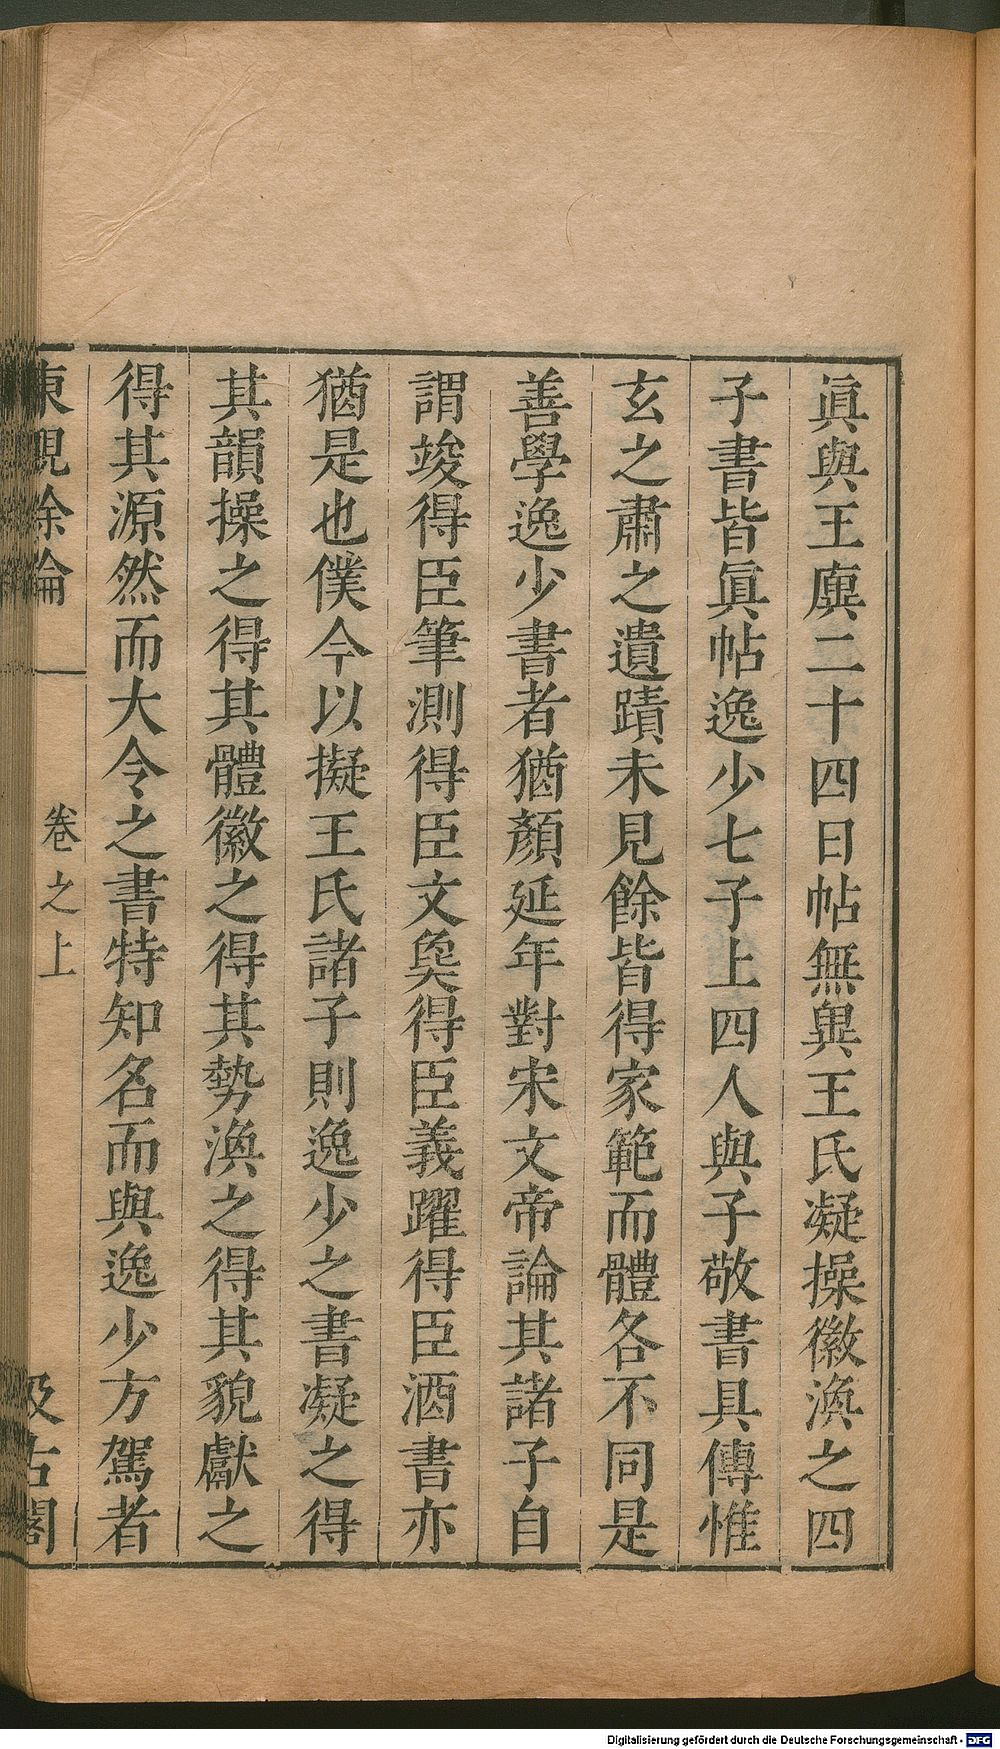 眞與王廙二十四日帖無輿王氏凝操徽渙之四
子書皆眞帖逸少七子上四人與子敬書具傳惟
玄之肅之遺蹟未見餘皆得家範而體各不同是
善學逸少書者猶顏延年對宋文帝論其諸子自
謂竣得臣筆測得臣文㚟得臣義躍得臣酒書亦
猶是也僕今以擬王氏諸子則逸少之書凝之得
其韻操之得其體徽之得其勢渙之得其貌獻之
得其源然而大令之書特知名而與逸少方駕者
東觀餘論 卷之上 汲古閣
Digitalisierung gefördert durch die Deutsche Forschungsgemeinschaft - DFG